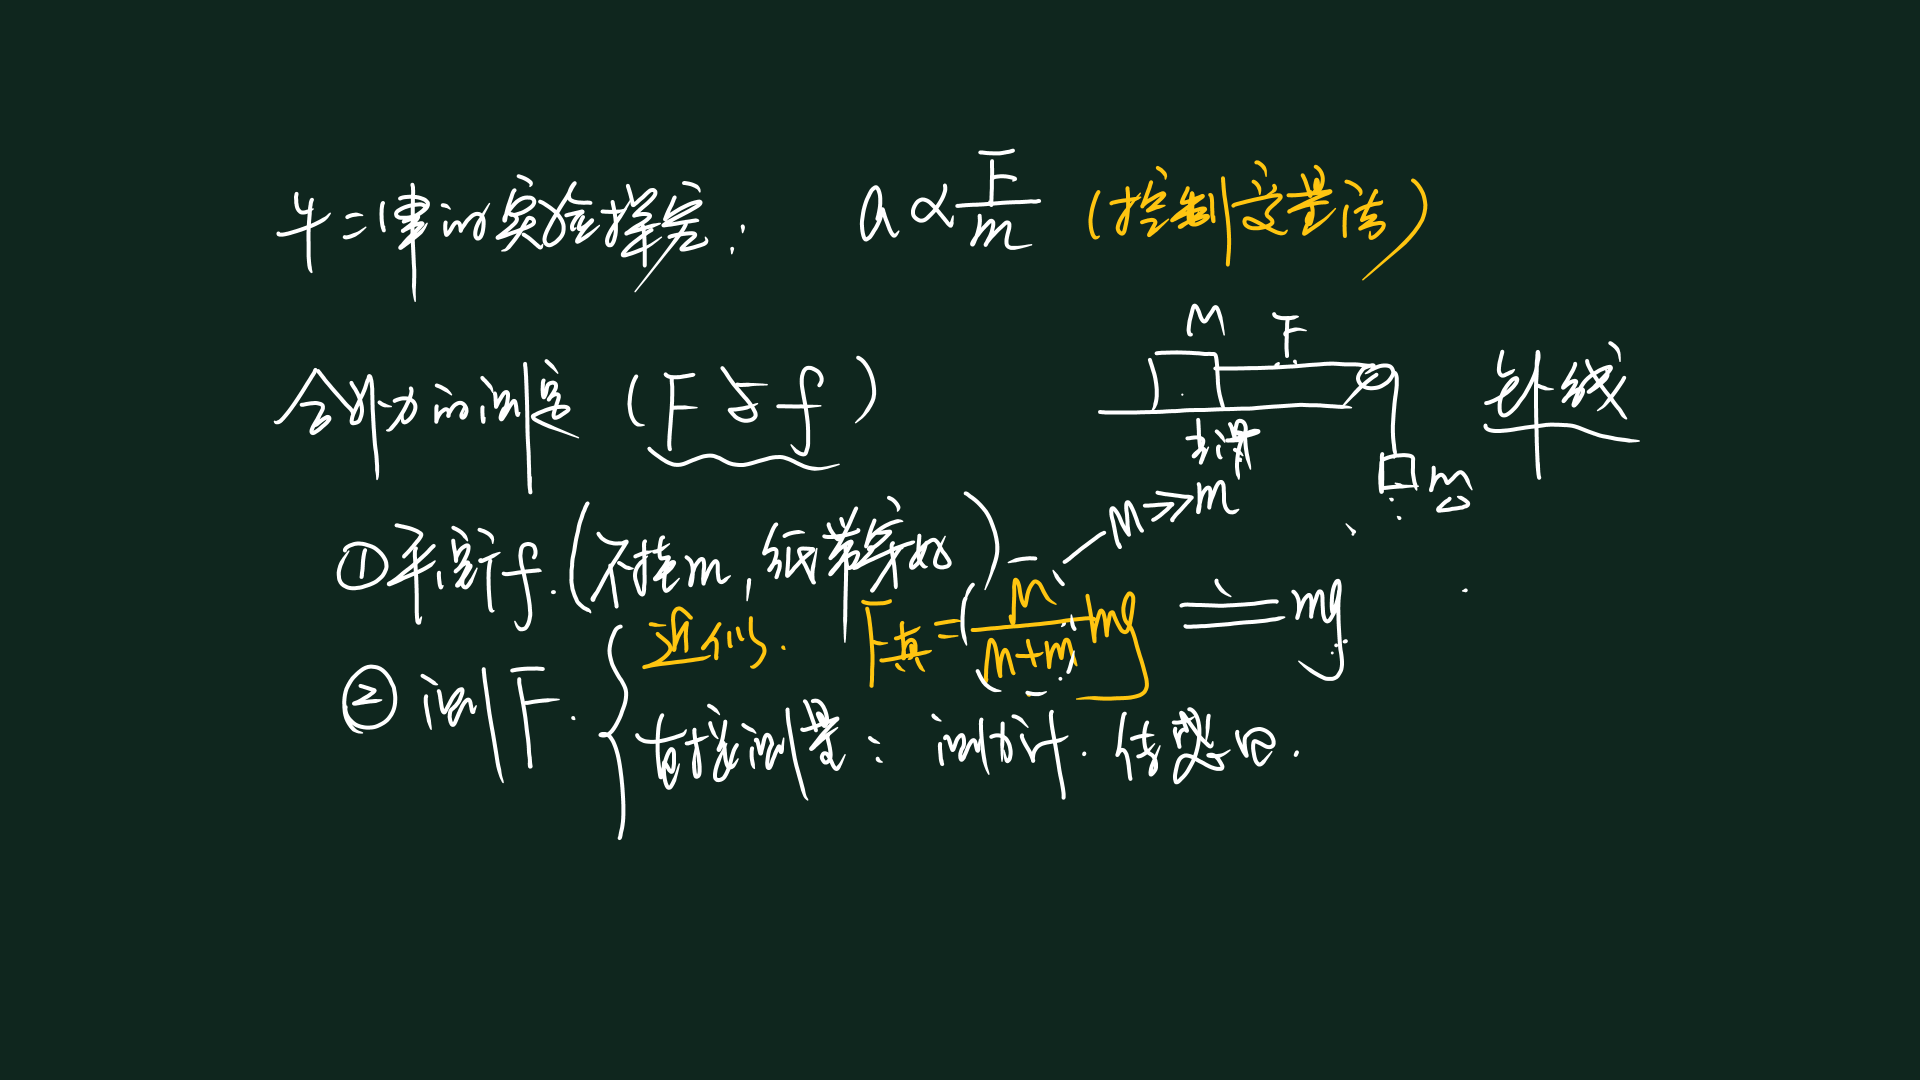 牛二律的实验探究： a∝F/m （控制变量法）
M F
合外力的测定 （F与f） 针线
光滑
m
M≫m
①平衡f.（不挂m，纸带穿好）
②测F. 近似. F真=(M/(M+m))mg ≐ mg
直接测量：测力计. 传感器.